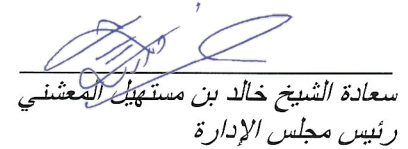 سعادة الشيخ خالد بن مستهيل المعشني
رئيس مجلس الإدارة